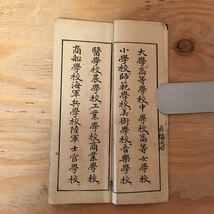 大學高等學校中學校高等女學校
小學校師範學校美術學校音樂學校
醫學校農學校工業學校商業學校
商船學校海軍兵學校陸軍士官學校